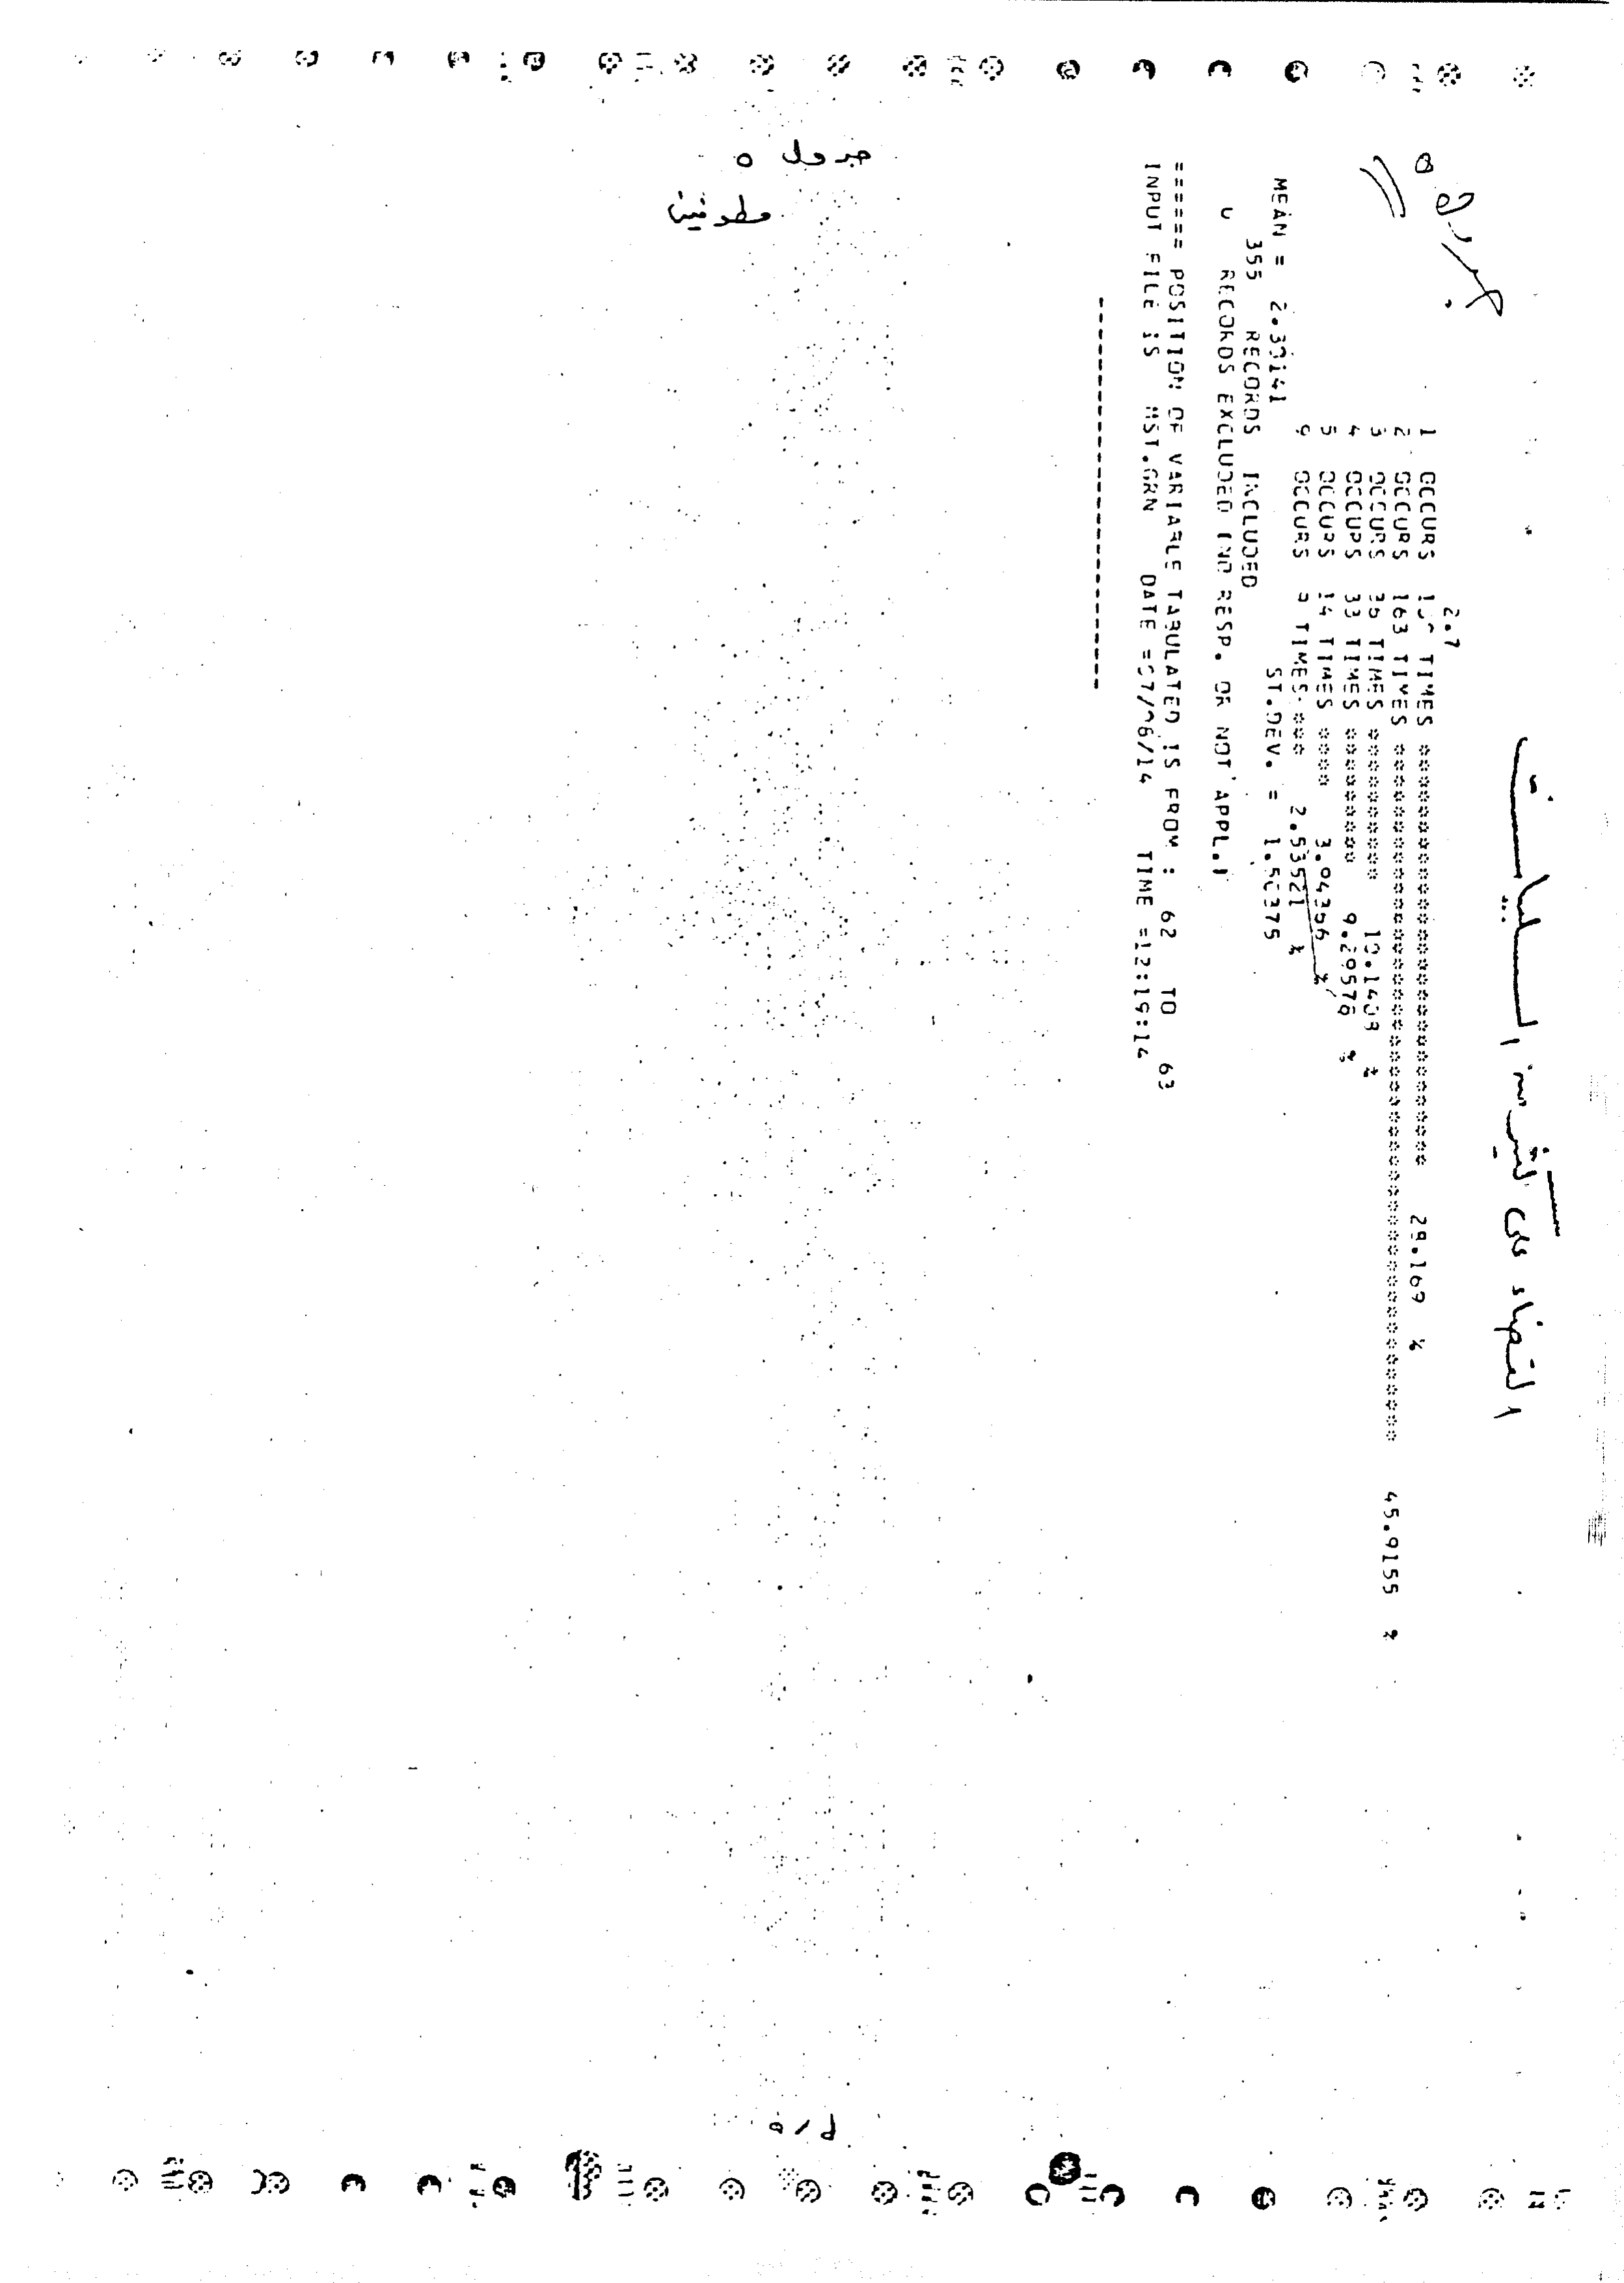 القضاء على كثير من السلبيات
جدول ٥
2.7
1 OCCURS TIMES 29.169 %
2 OCCURS 163 TIMES 45.9155 %
3 OCCURS TIMES 10.1408 %
4 OCCURS 33 TIMES 9.29578 %
5 OCCURS 14 TIMES %
9 OCCURS 9 TIMES *** 2.53521 %
MEAN = ST.DEV. =
355 RECORDS INCLUDED
RECORDS EXCLUDED (NO RESP. OR NOT APPL.)
====== POSITION OF VARIABLE TABULATED IS FROM : 62 TO 63
INPUT FILE IS DATE TIME
جدول ٥